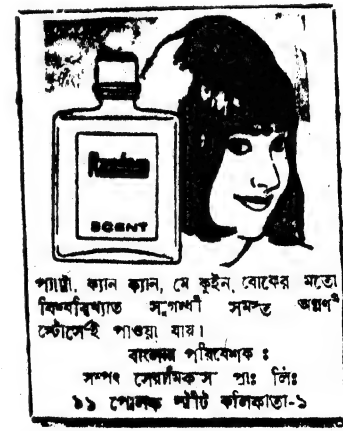 SCENT
প্যারী, ক্যান ক্যান, মে কুইন, বোকের মতো
বিশ্ববিখ্যাত সুগন্ধী সমস্ত অগ্রণী
স্টোর্সেই পাওয়া যায়।
বাংলার পরিবেশক :
সম্পৎ সেরামিকস প্রাঃ লিঃ
১১ পোলক স্ট্রীট কলিকাতা-১